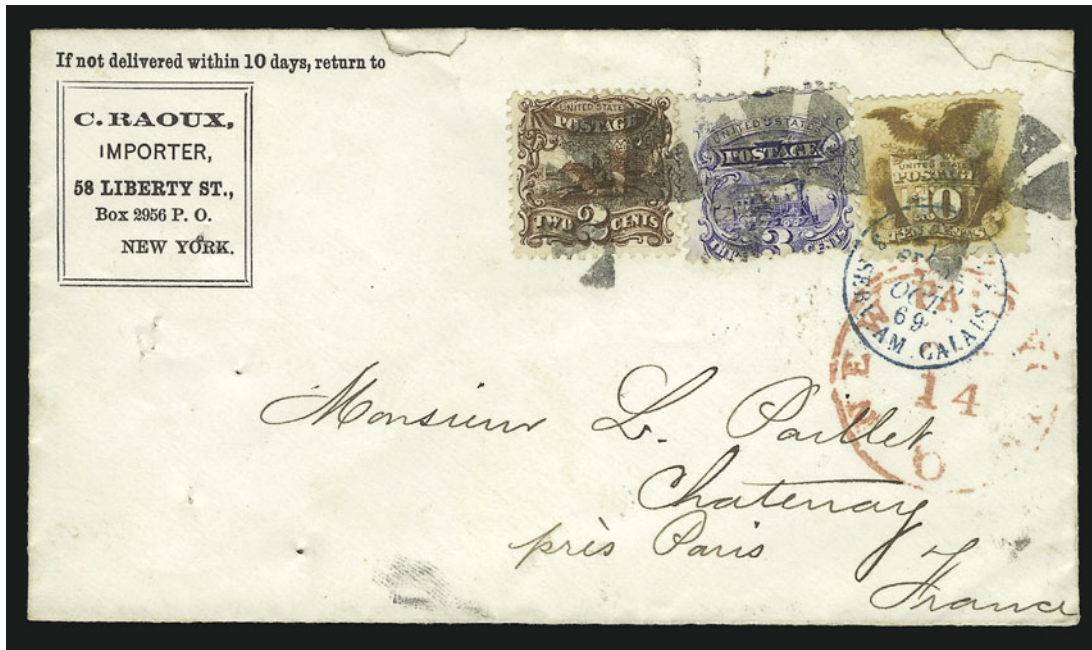 If not delivered within 10 days, return to
C. RAOUX,
IMPORTER,
58 LIBERTY ST.,
Box 2956 P. O.
NEW YORK.
UNITED STATES
POSTAGE
TWO 2 CENTS
UNITED STATES
POSTAGE
3 CENTS
UNITED STATES
POSTAGE
10
TEN CENTS
OCT.
69
AM. CALAIS
NEW
PA
14
Monsieur L. Paillet
Chatenay
près Paris
France